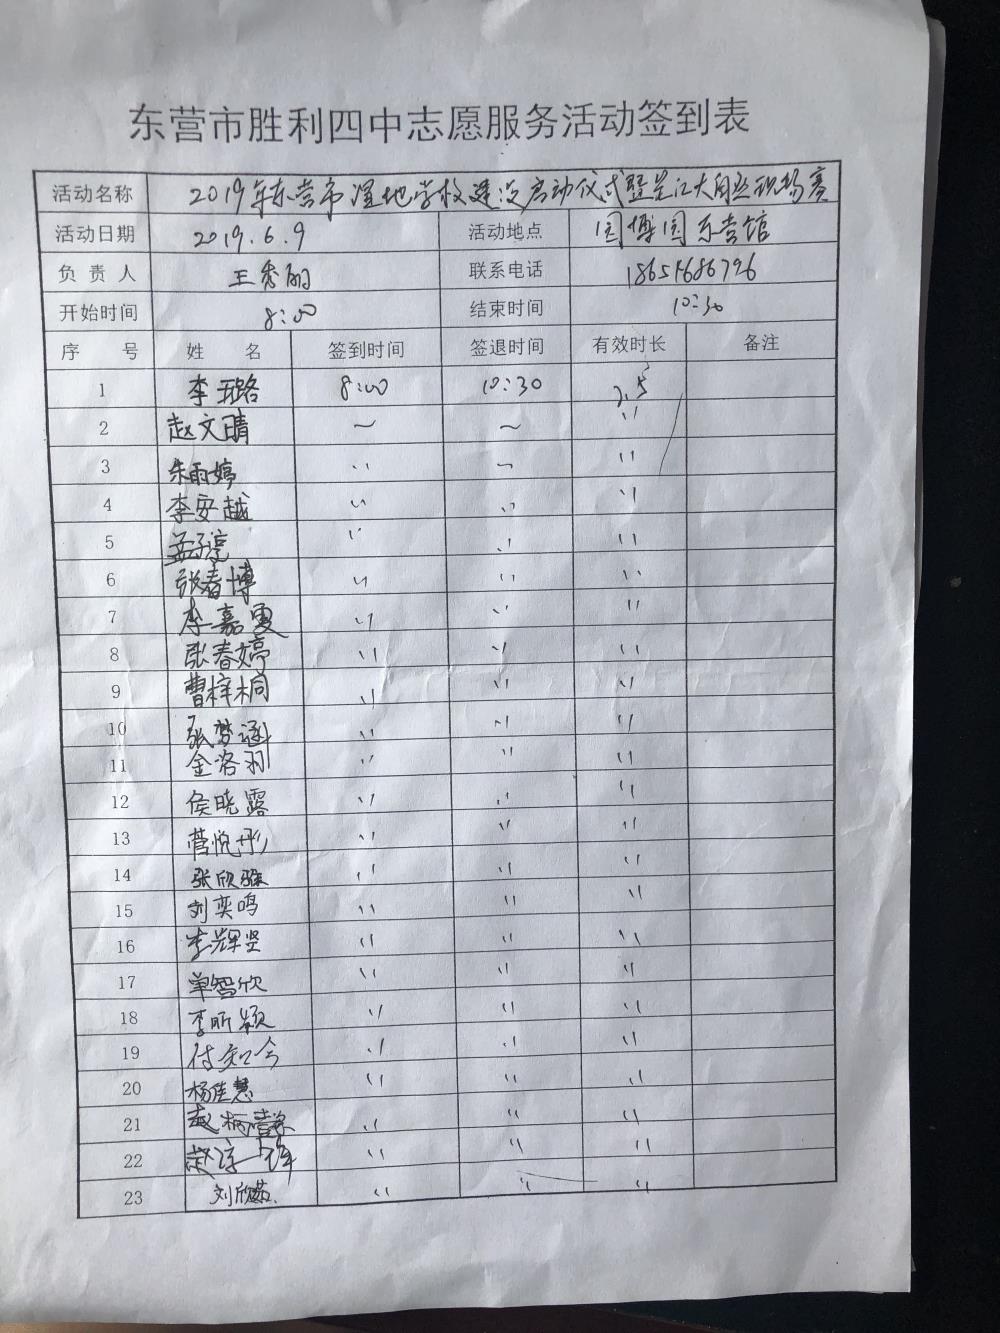 东营市胜利四中志愿服务活动签到表
活动名称 2019年东营市湿地学校建设启动仪式暨
活动日期 2019.6.9 活动地点 园博园东营馆
负责人 王秀丽 联系电话 18651686796
开始时间 8:00 结束时间 10:30
序号 姓名 签到时间 签退时间 有效时长 备注
1 李珏路 8:00 10:30 2.5
2 赵文晴 ~ ~ ''
3 朱雨婷 '' ~ ''
4 李安越 '' '' ''
5 孟子淳 '' '' ''
6 张春博 '' '' ''
7 李嘉雯 '' '' ''
8 张春婷 '' '' ''
9 曹梓桐 '' '' ''
10 张梦涵 '' '' ''
11 金洛羽 '' '' ''
12 侯晓露 '' '' ''
13 菅悦彤 '' '' ''
14 张欣 '' '' ''
15 刘奕鸣 '' '' ''
16 李辉坚 '' '' ''
17 单智欣 '' '' ''
18 李昕颖 '' '' ''
19 付知今 '' '' ''
20 杨佳慧 '' '' ''
21 赵 '' '' ''
22 赵 '' '' ''
23 刘欣茹 '' '' ''